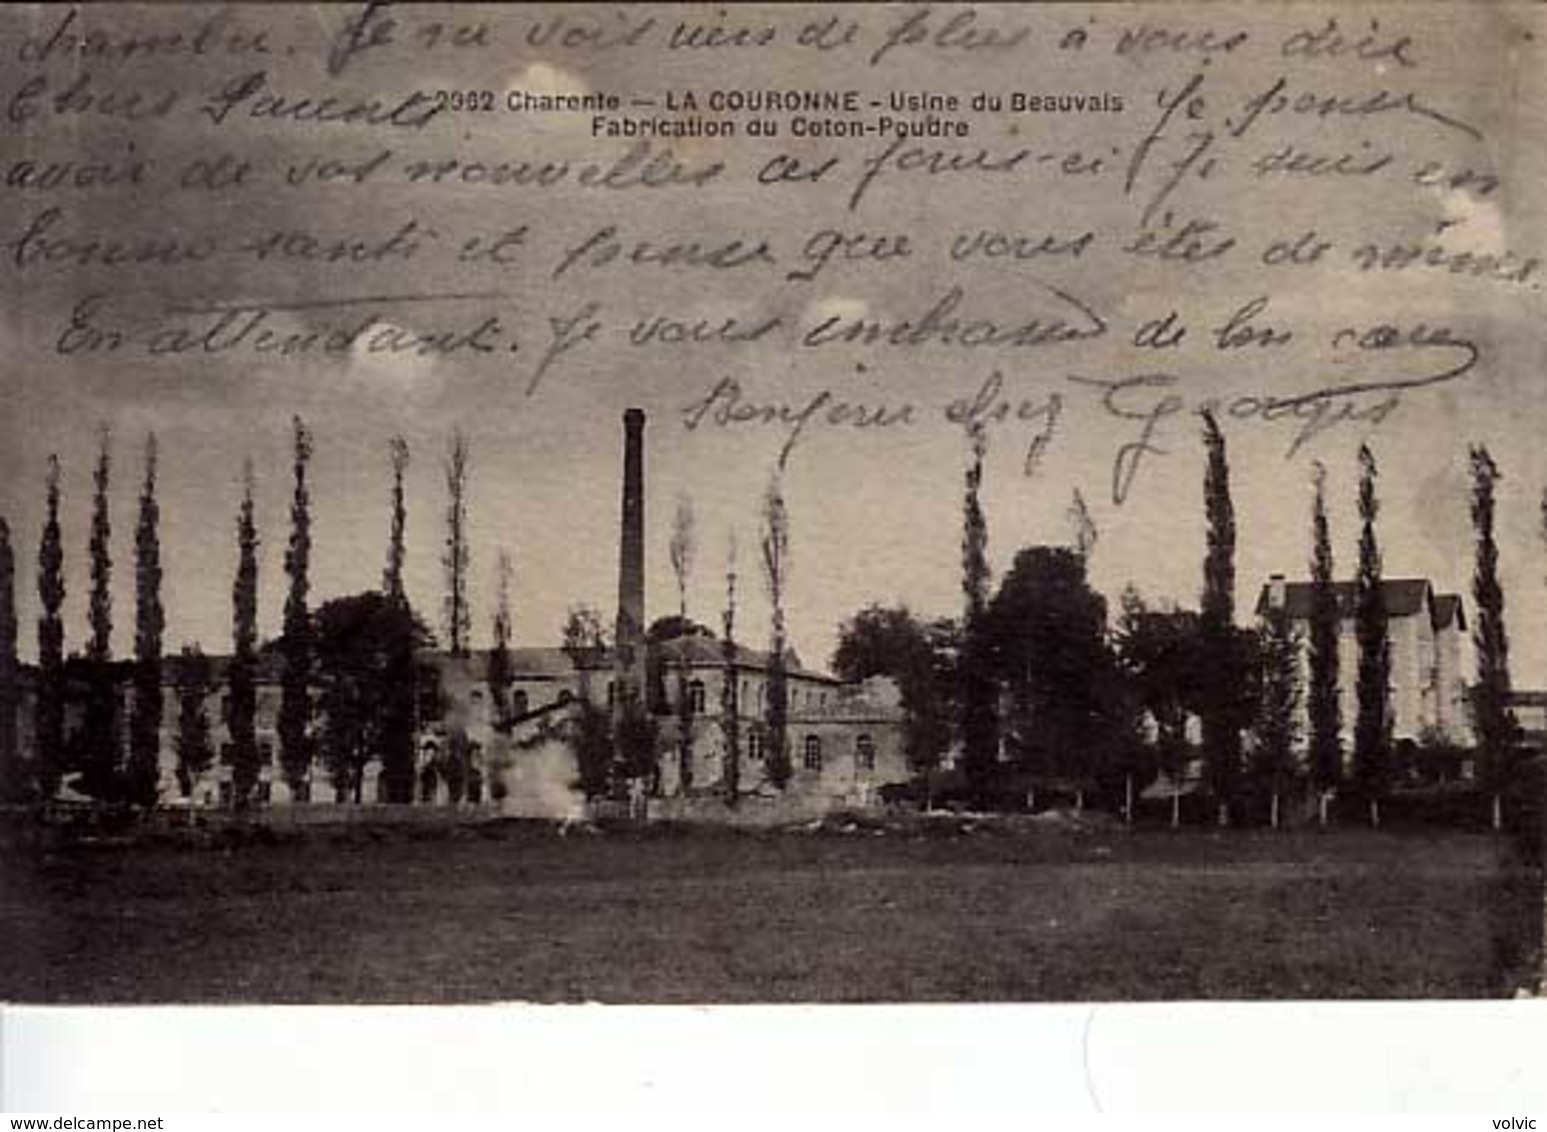 chambre. Je ne vois rien de plus à vous dire
Chers Parents. Je pense
2962 Charente — LA COURONNE - Usine du Beauvais
Fabrication du Coton-Poudre
avoir de vos nouvelles ces jours-ci Je suis en
bonne santé et pense que vous êtes de même.
En attendant. Je vous embrasse de bon cœur
Bonjour chez Georges
www.delcampe.net
volvic